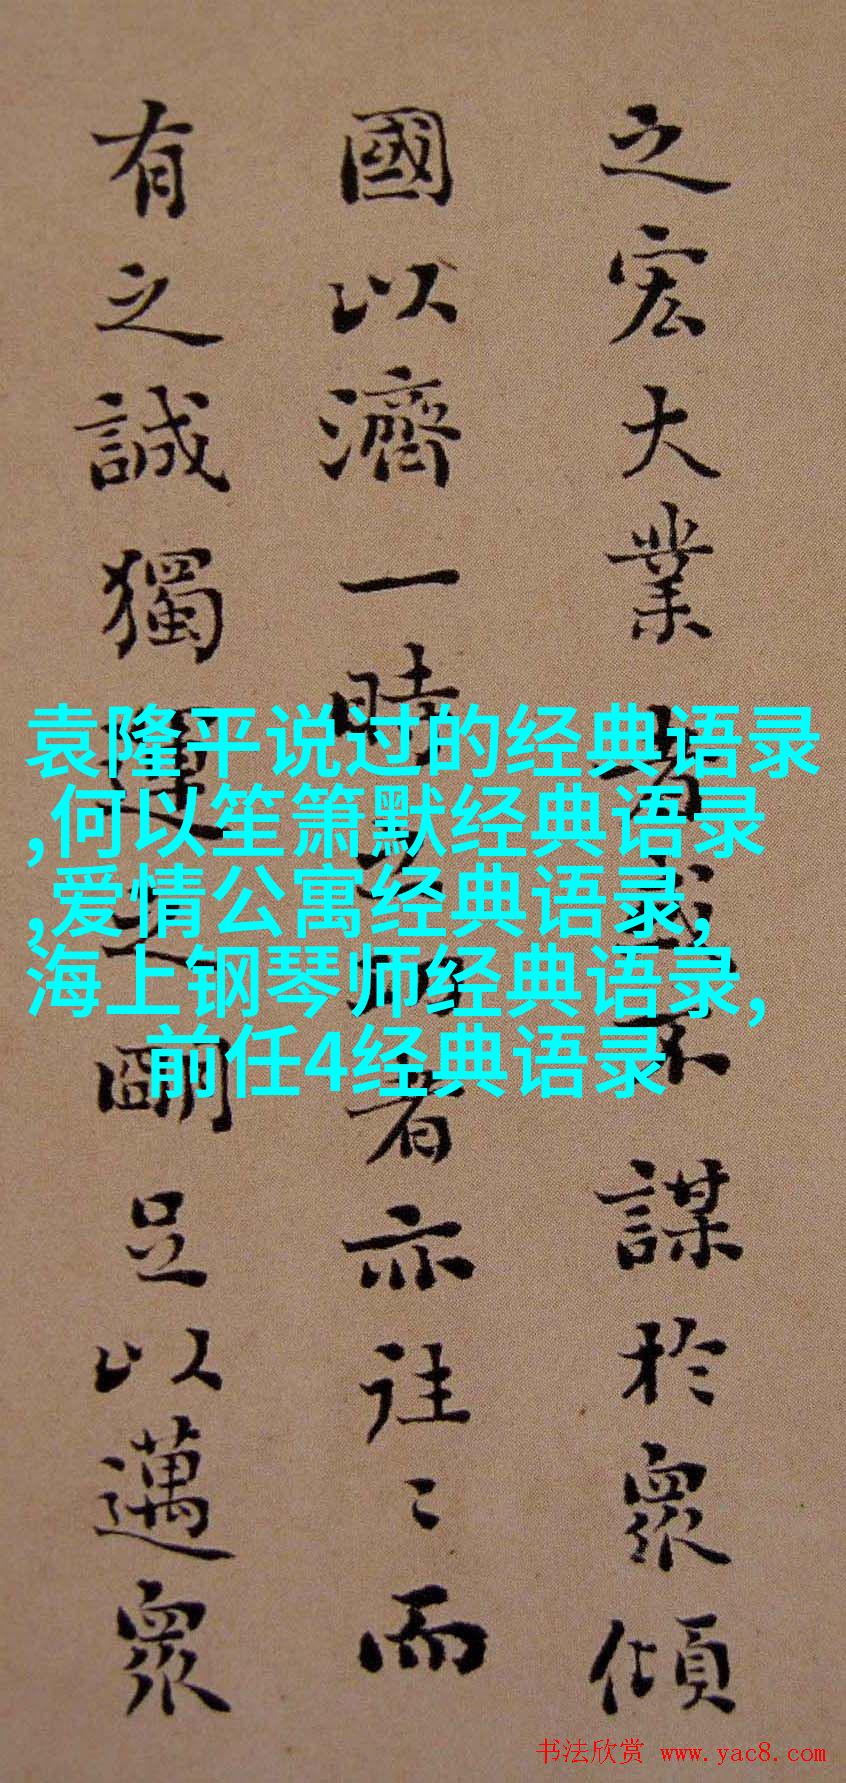 之宏大業者或不謀於眾傾
國以濟一時之功者亦往〻而
有之誠獨運之朙足以邁眾
袁隆平说过的经典语录
,何以笙箫默经典语录
,爱情公寓经典语录,
海上钢琴师经典语录,
前任4经典语录
书法欣赏 www.yac8.com